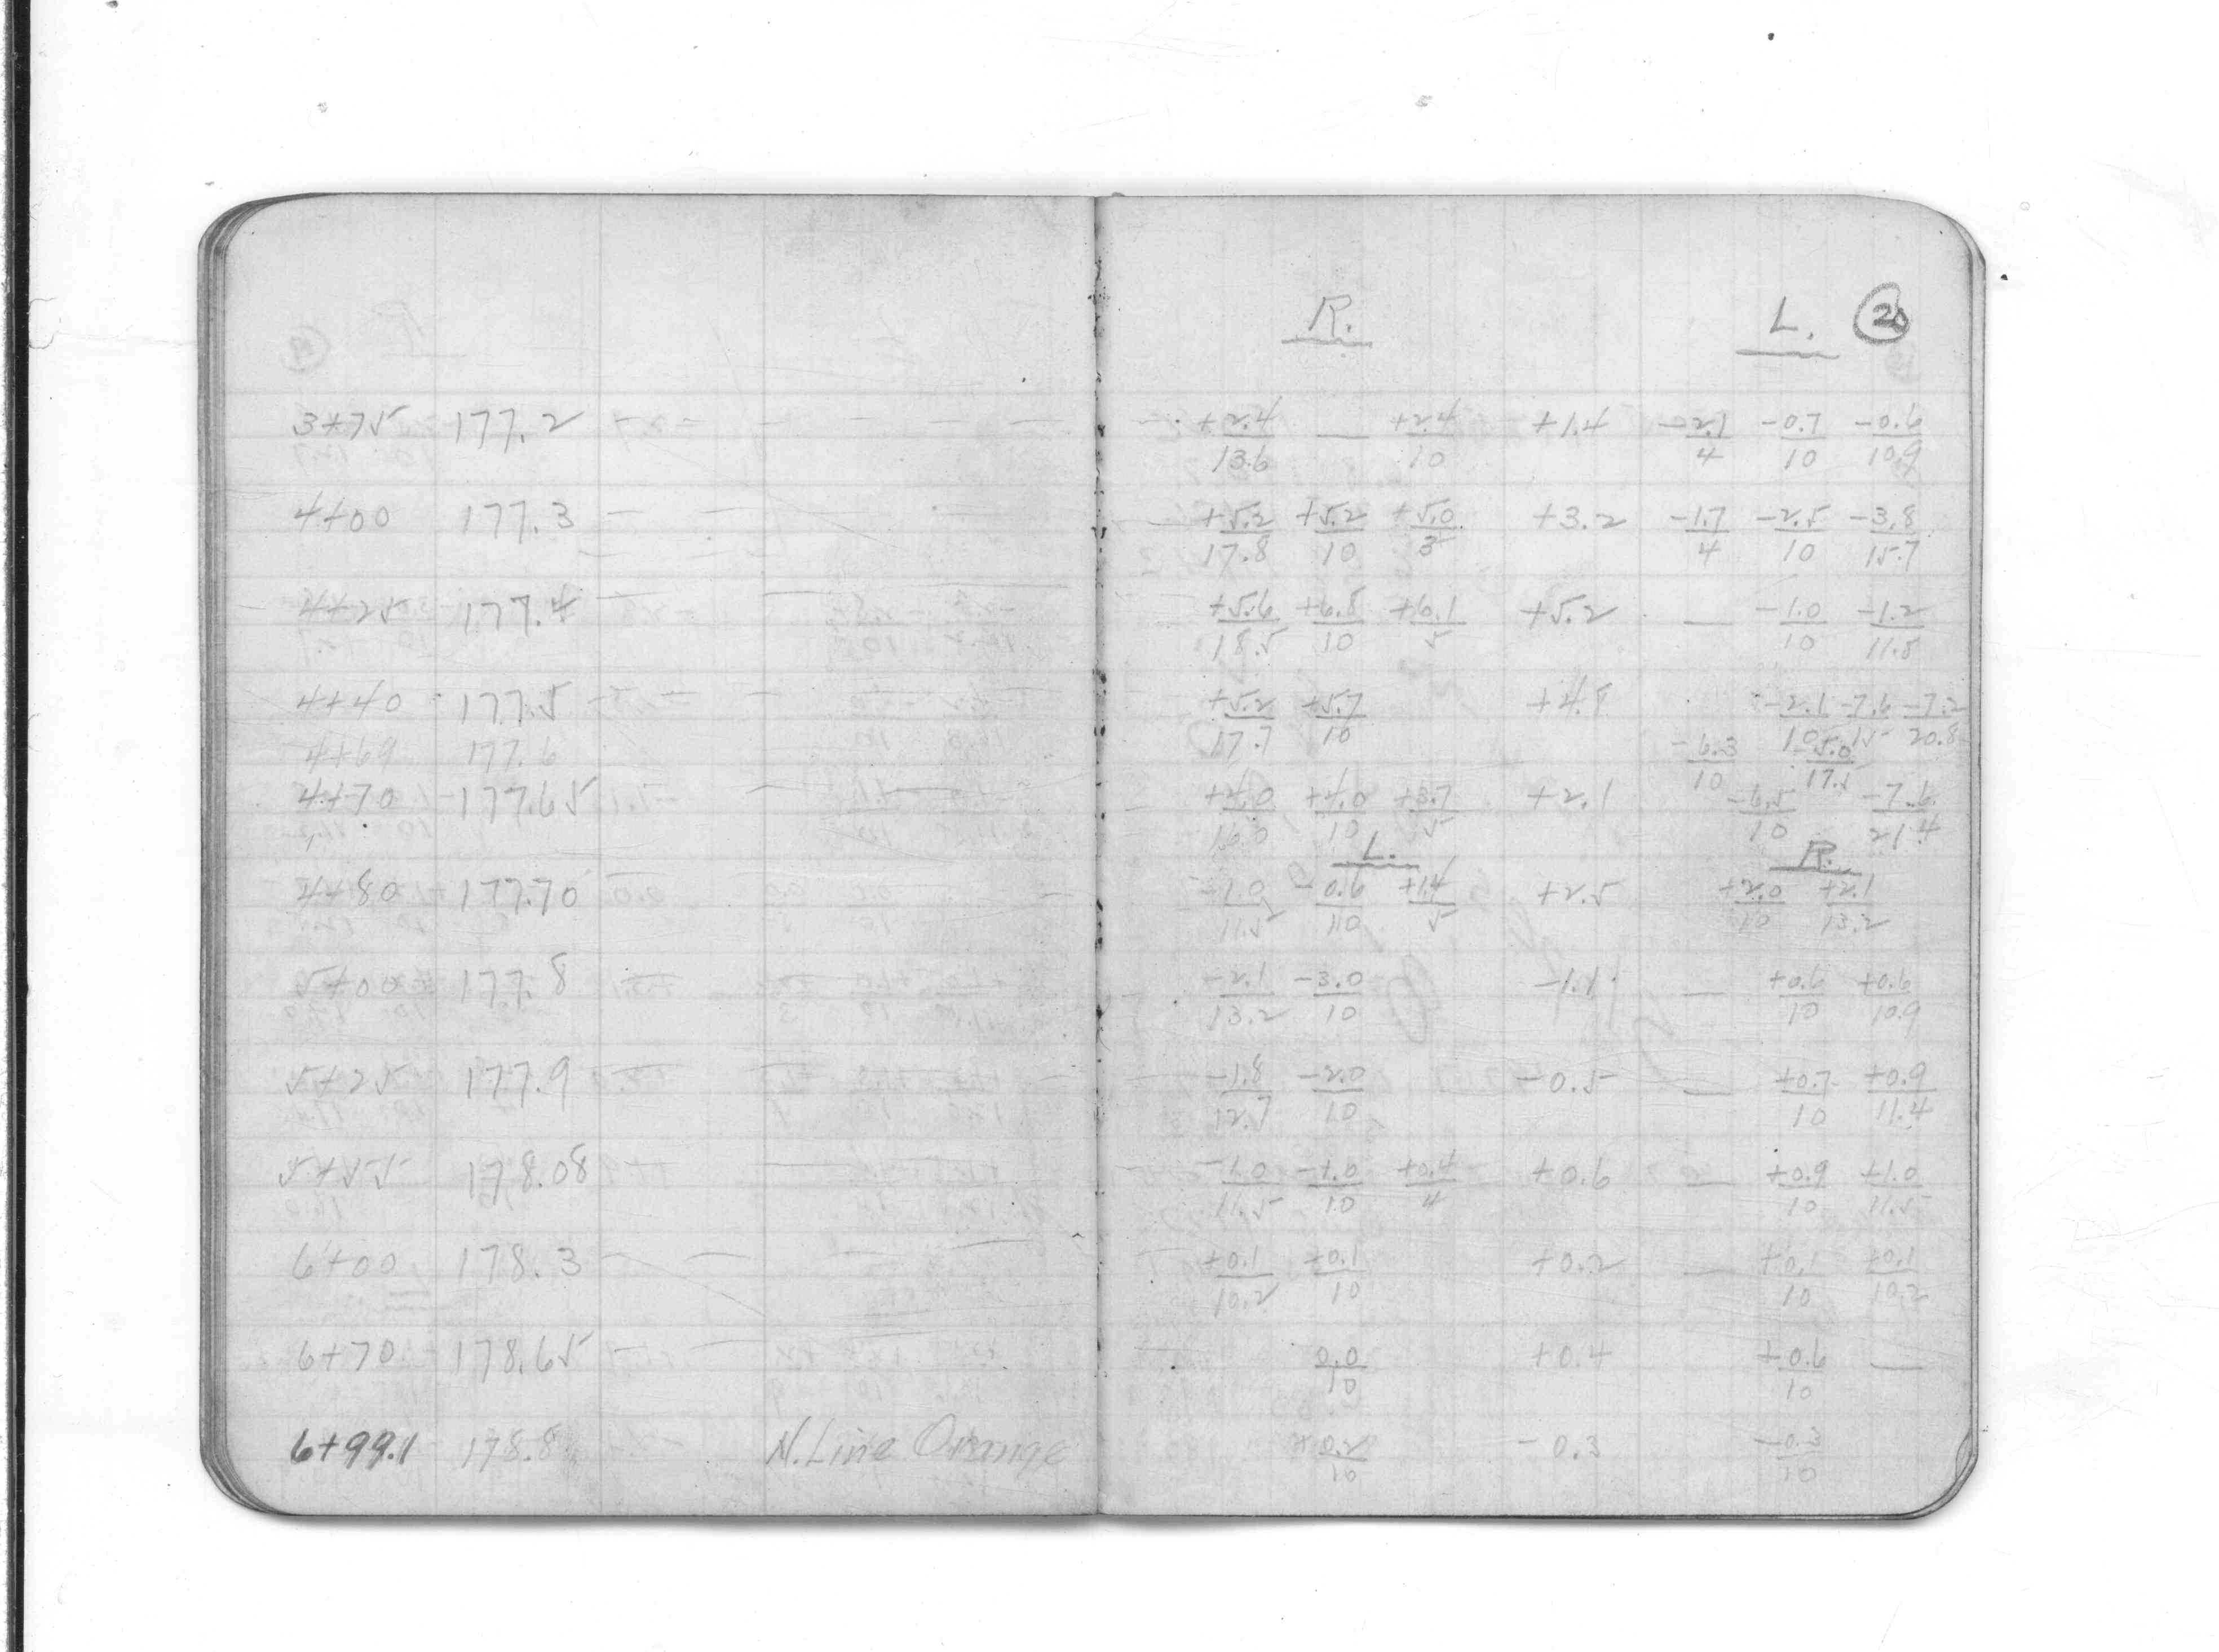 R. L. 20
3+75 177.2 +2.4/13.6 — +2.4/10 +1.4 -2.1/4 -0.7/10 -0.6/10.9
4+00 177.3 +5.2/17.8 +5.2/10 +5.0/3 +3.2 -1.7/4 -2.5/10 -3.8/15.7
4+25 177.4 +5.6/18.5 +6.8/10 +6.1/5 +5.2 — -1.0/10 -1.2/11.8
4+40 177.5 +5.2/17.7 +5.7/10 +4.8 -2.1/10 -7.6/15 -7.2/20.8
4+69 177.6 -6.3/10 -5.0/17.5
4+70 177.65 +4.0/16.0 +4.0/10 +3.7/5 +2.1 -6.5/10 -7.6/21.4
L. R.
4+80 177.70 -1.0/11.5 -0.6/10 +1.4/5 +2.5 +2.0/10 +2.1/13.2
5+00 177.8 -2.1/13.2 -3.0/10 -1.1 — +0.6/10 +0.6/10.9
5+25 177.9 -1.8/12.7 -2.0/10 -0.5 — +0.7/10 +0.9/11.4
5+55 178.08 -1.0/11.5 -1.0/10 +0.4/4 +0.6 — +0.9/10 +1.0/11.5
6+00 178.3 +0.1/10.2 +0.1/10 +0.2 — +0.1/10 +0.1/10.2
6+70 178.65 0.0/10 +0.4 +0.6/10 —
6+99.1 178.8 N. Line Orange +0.2/10 -0.3 -0.3/10